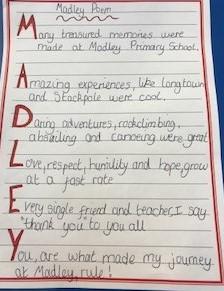 Madley Poem
Many treasured memories were
made at Madley Primary School.
Amazing experiences, like longtown
and Stackpole were cool.
Daring adventures, rockclimbing,
abseiling and canoeing were great
Love, respect, humility and hope, grow
at a fast rate
Every single friend and teacher, I say
"thank you" to you all
You, are what made my journey
at Madley, rule!